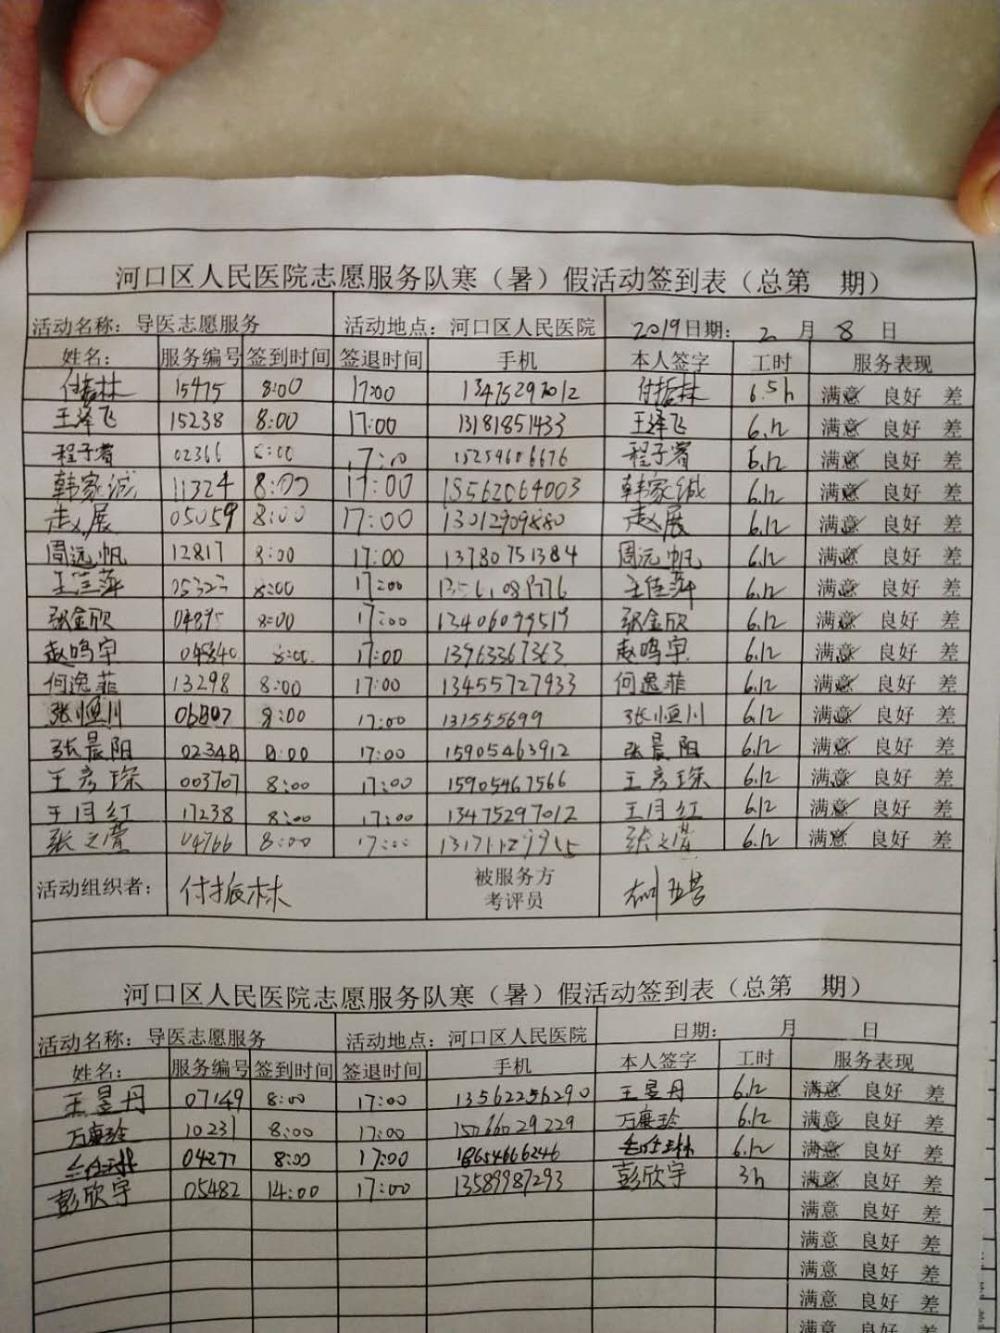 河口区人民医院志愿服务队寒（暑）假活动签到表（总第 期）
活动名称：导医志愿服务 活动地点：河口区人民医院 2019日期： 2 月 8 日
姓名： 服务编号 签到时间 签退时间 手机 本人签字 工时 服务表现
付振林 15475 8:00 17:00 13475297012 付振林 6.5h 满意 良好 差
王泽飞 15238 8:00 17:00 13181851433 王泽飞 满意 良好 差
程子睿 02366 17:00 15254606676 程子睿 满意 良好 差
韩家诚 11324 8:00 17:00 15562064003 韩家诚 满意 良好 差
赵展 05059 8:00 17:00 13012909880 赵展 满意 良好 差
周远帆 12817 8:00 17:00 13780751384 周远帆 满意 良好 差
8:00 17:00 满意 良好 差
张金欣 8:00 17:00 张金欣 满意 良好 差
赵鸣宇 04840 8:00 17:00 13963367363 赵鸣宇 满意 良好 差
何逸菲 13298 8:00 17:00 13455727933 何逸菲 满意 良好 差
张恒川 8:00 17:00 131555699 张恒川 满意 良好 差
张晨阳 02348 8:00 17:00 15905463912 张晨阳 满意 良好 差
王彦琛 003707 8:00 17:00 15905467566 王彦琛 满意 良好 差
王月红 17238 8:00 17:00 13475297012 王月红 满意 良好 差
张之萱 04766 8:00 17:00 张之萱 满意 良好 差
活动组织者： 付振林 被服务方考评员
河口区人民医院志愿服务队寒（暑）假活动签到表（总第 期）
活动名称：导医志愿服务 活动地点：河口区人民医院 日期： 月 日
姓名： 服务编号 签到时间 签退时间 手机 本人签字 工时 服务表现
王昱丹 07149 8:00 17:00 13562256290 王昱丹 满意 良好 差
万康珍 10231 8:00 17:00 15066029229 万康珍 满意 良好 差
04277 8:00 17:00 18654666246 满意 良好 差
彭欣宇 05482 14:00 17:00 13589987293 彭欣宇 3h 满意 良好 差
满意 良好 差
满意 良好 差
满意 良好 差
满意 良好 差
满意 良好 差